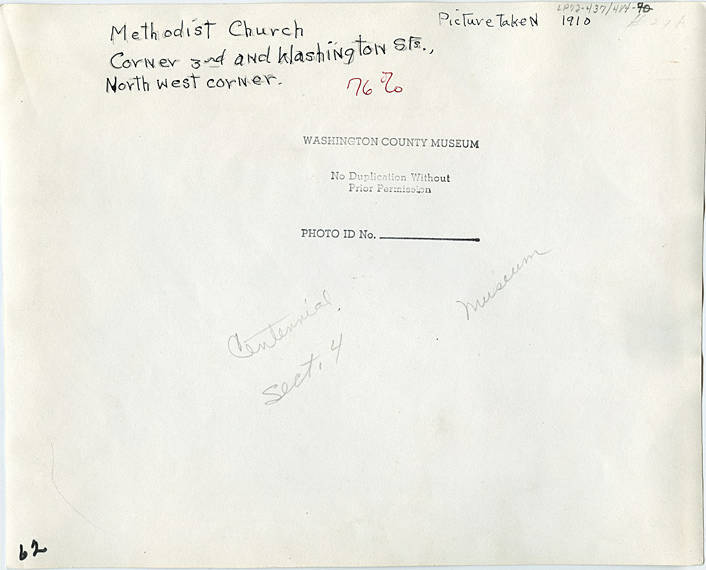 Methodist Church
Corner 3nd and Washington Sts.,
North west corner.
Picture Taken 1910
76%
WASHINGTON COUNTY MUSEUM
No Duplication Without
Prior Permission
PHOTO ID No.
Centennial
Sect. 4
Museum
62